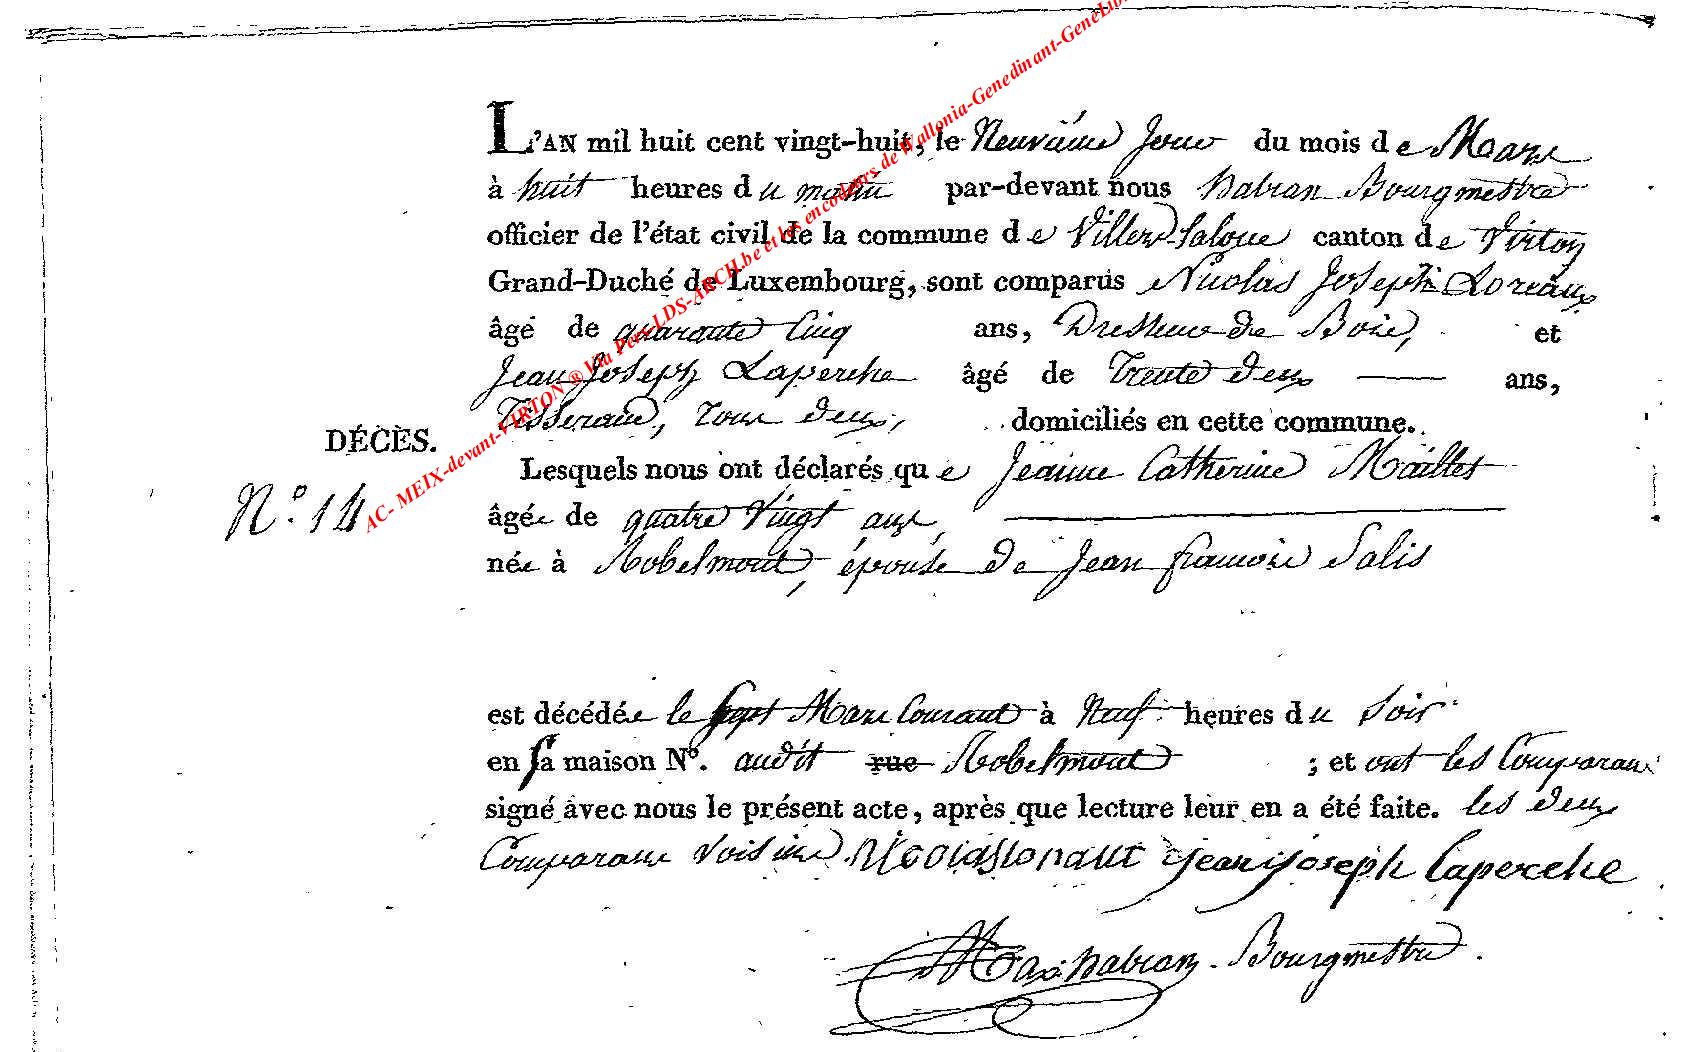 L'AN mil huit cent vingt-huit, le Neuvième Jour du mois de Mars
à huit heures du matin par-devant nous habran Bourgmestre
officier de l'état civil de la commune de Villers-Laloue canton de Virton
Grand-Duché de Luxembourg, sont comparus Nicolas Joseph Loreaux
âgé de quarante Cinq ans, Dresseur de Bois, et
Jean Joseph Laperche âgé de Trente Deux ans,
Tisserand, tous deux, domiciliés en cette commune.
DÉCÈS.
Lesquels nous ont déclarés que Jeanne Catherine Maillet
N.° 14
âgée de quatre Vingt ans,
née à Robelmont, épouse de Jean françois Salis
est décédée le sept Mars Courant à Neuf heures du Soir
en sa maison N°. audit rue Robelmont ; et ont les Comparans
signé avec nous le présent acte, après que lecture leur en a été faite. les deux
Comparans Voisins. Nicolas Jean joseph Laperche
habran Bourgmestre.
AC- MEIX-devant-VIRTON ® Via Port LDS-ARCH.be et les encodeurs de Wallonia-Genedinant-GeneLib